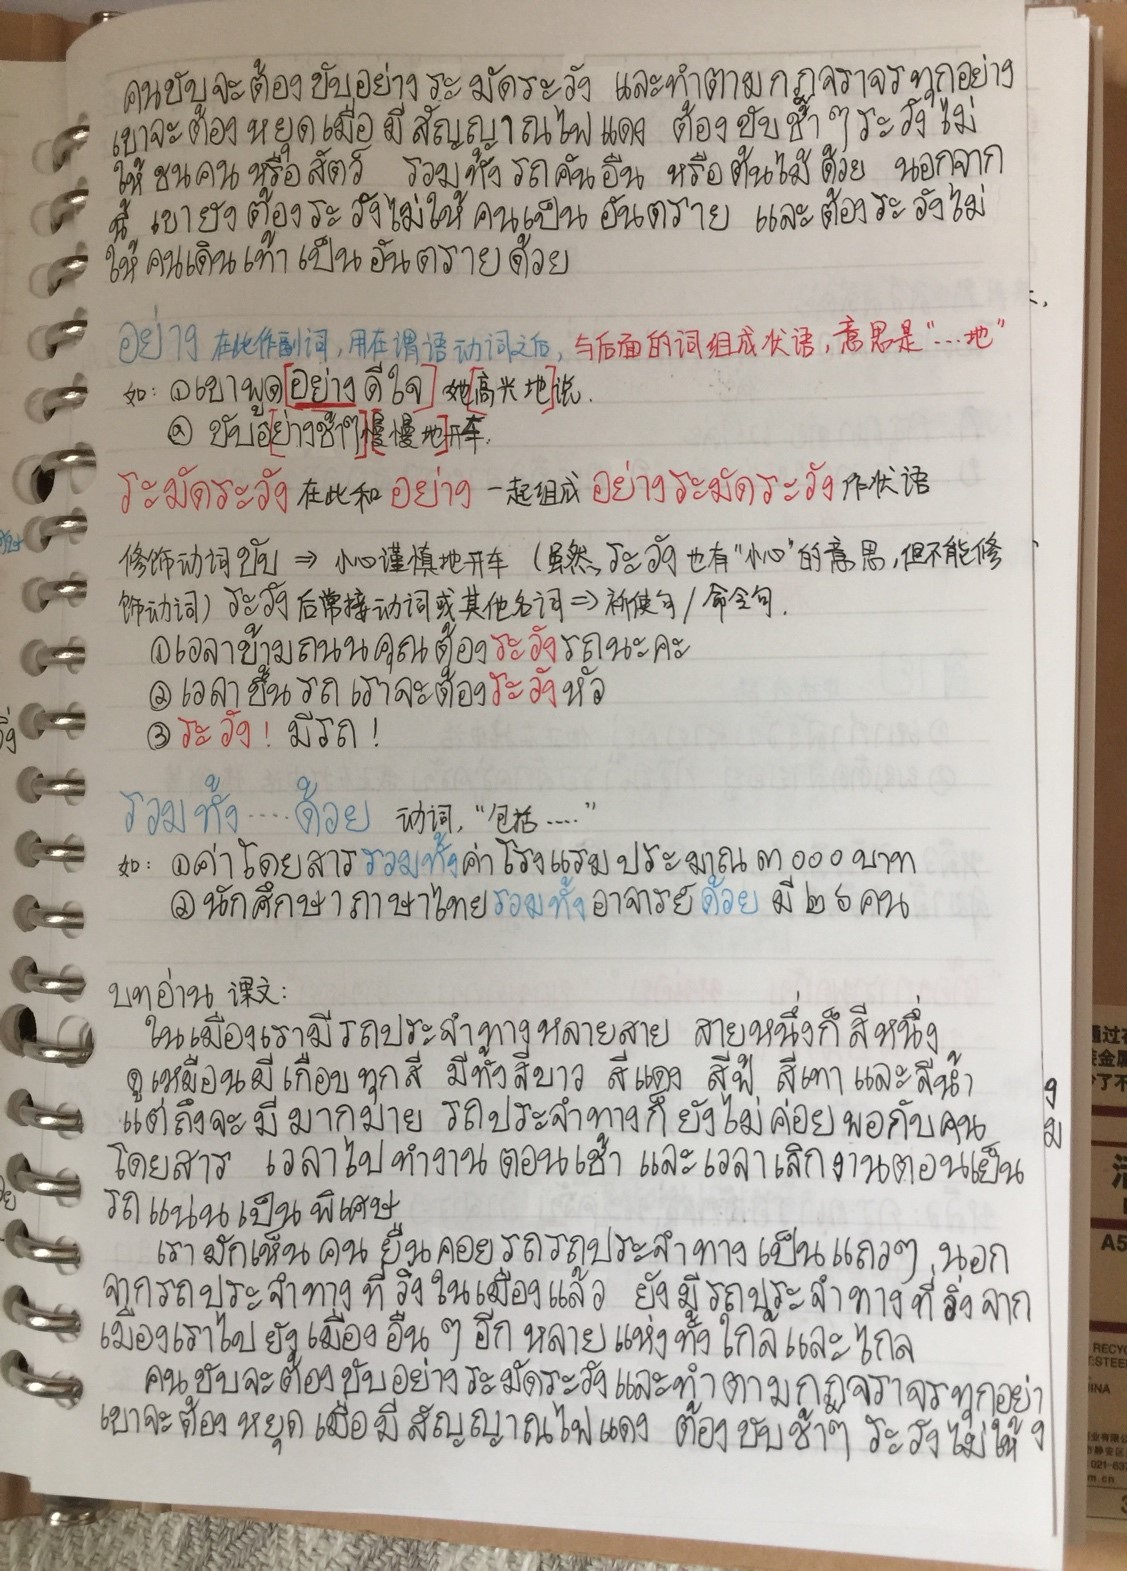 คนขับจะต้องขับอย่างระมัดระวัง และทำตามกฎจราจรทุกอย่าง
เขาจะต้องหยุดเมื่อมีสัญญาณไฟแดง ต้องขับช้าๆ ระวังไม่
ให้ชนคนหรือสัตว์ รวมทั้งรถคันอื่น หรือต้นไม้ด้วย นอกจาก
นี้ เขายังต้องระวังไม่ให้คนเป็นอันตราย และต้องระวังไม่
ให้คนเดินเท้าเป็นอันตรายด้วย
อย่าง 在此作副词,用在谓语动词之后,与后面的词组成状语,意思是“…地”
如: ①เขาพูด[อย่างดีใจ] 她[高兴地]说.
② ขับอ[ย่างช้าๆ][慢慢地]开车.
ระมัดระวัง 在此和 อย่าง 一起组成 อย่างระมัดระวัง 作状语
修饰动词ขับ ⇒ 小心谨慎地开车 (虽然 ระวัง 也有“小心”的意思,但不能修
饰动词) ระวัง 后常接动词或其他名词⇒祈使句/命令句.
①เวลาข้ามถนนคุณต้องระวังรถนะคะ
②เวลาขึ้นรถเราจะต้องระวังหัว
③ระวัง! มีรถ!
รวมทั้ง....ด้วย 动词,“包括....”
如: ①ค่าโดยสารรวมทั้งค่าโรงแรมประมาณ ๓๐๐๐ บาท
②นักศึกษาภาษาไทยรวมทั้งอาจารย์ด้วย มี ๒๖ คน
บทอ่าน 课文:
ในเมืองเรามีรถประจำทางหลายสาย สายหนึ่งก็สีหนึ่ง
ดูเหมือนมีเกือบทุกสี มีทั้งสีขาว สีแดง สีฟ้ สีเทาและสีน้ำ
แต่ถึงจะมีมากมาย รถประจำทางก็ยังไม่ค่อยพอกับคน
โดยสาร เวลาไปทำงานตอนเช้า และเวลาเลิกงานตอนเย็น
รถแน่นเป็นพิเศษ
เรามักเห็นคนยืนคอยรถรถประจำทางเป็นแถวๆ นอก
จากรถประจำทางที่วิ่งในเมืองแล้ว ยังมีรถประจำทางที่วิ่งจาก
เมืองเราไปยังเมืองอื่นๆ อีกหลายแห่งทั้งใกล้และไกล
คนขับจะต้องขับอย่างระมัดระวังและทำตามกฎจราจรทุกอย่า
ง
เขาจะต้องหยุดเมื่อมีสัญญาณไฟแดง ต้องขับช้าๆ ระวังไม่ให้
ง
ม
A5
RECY
STEE
INA
021-63
m.cn